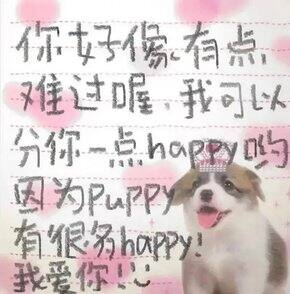 你好像有点
难过喔、我可以
分你一点happy哟
因为puppy
有很多happy!
我爱你!